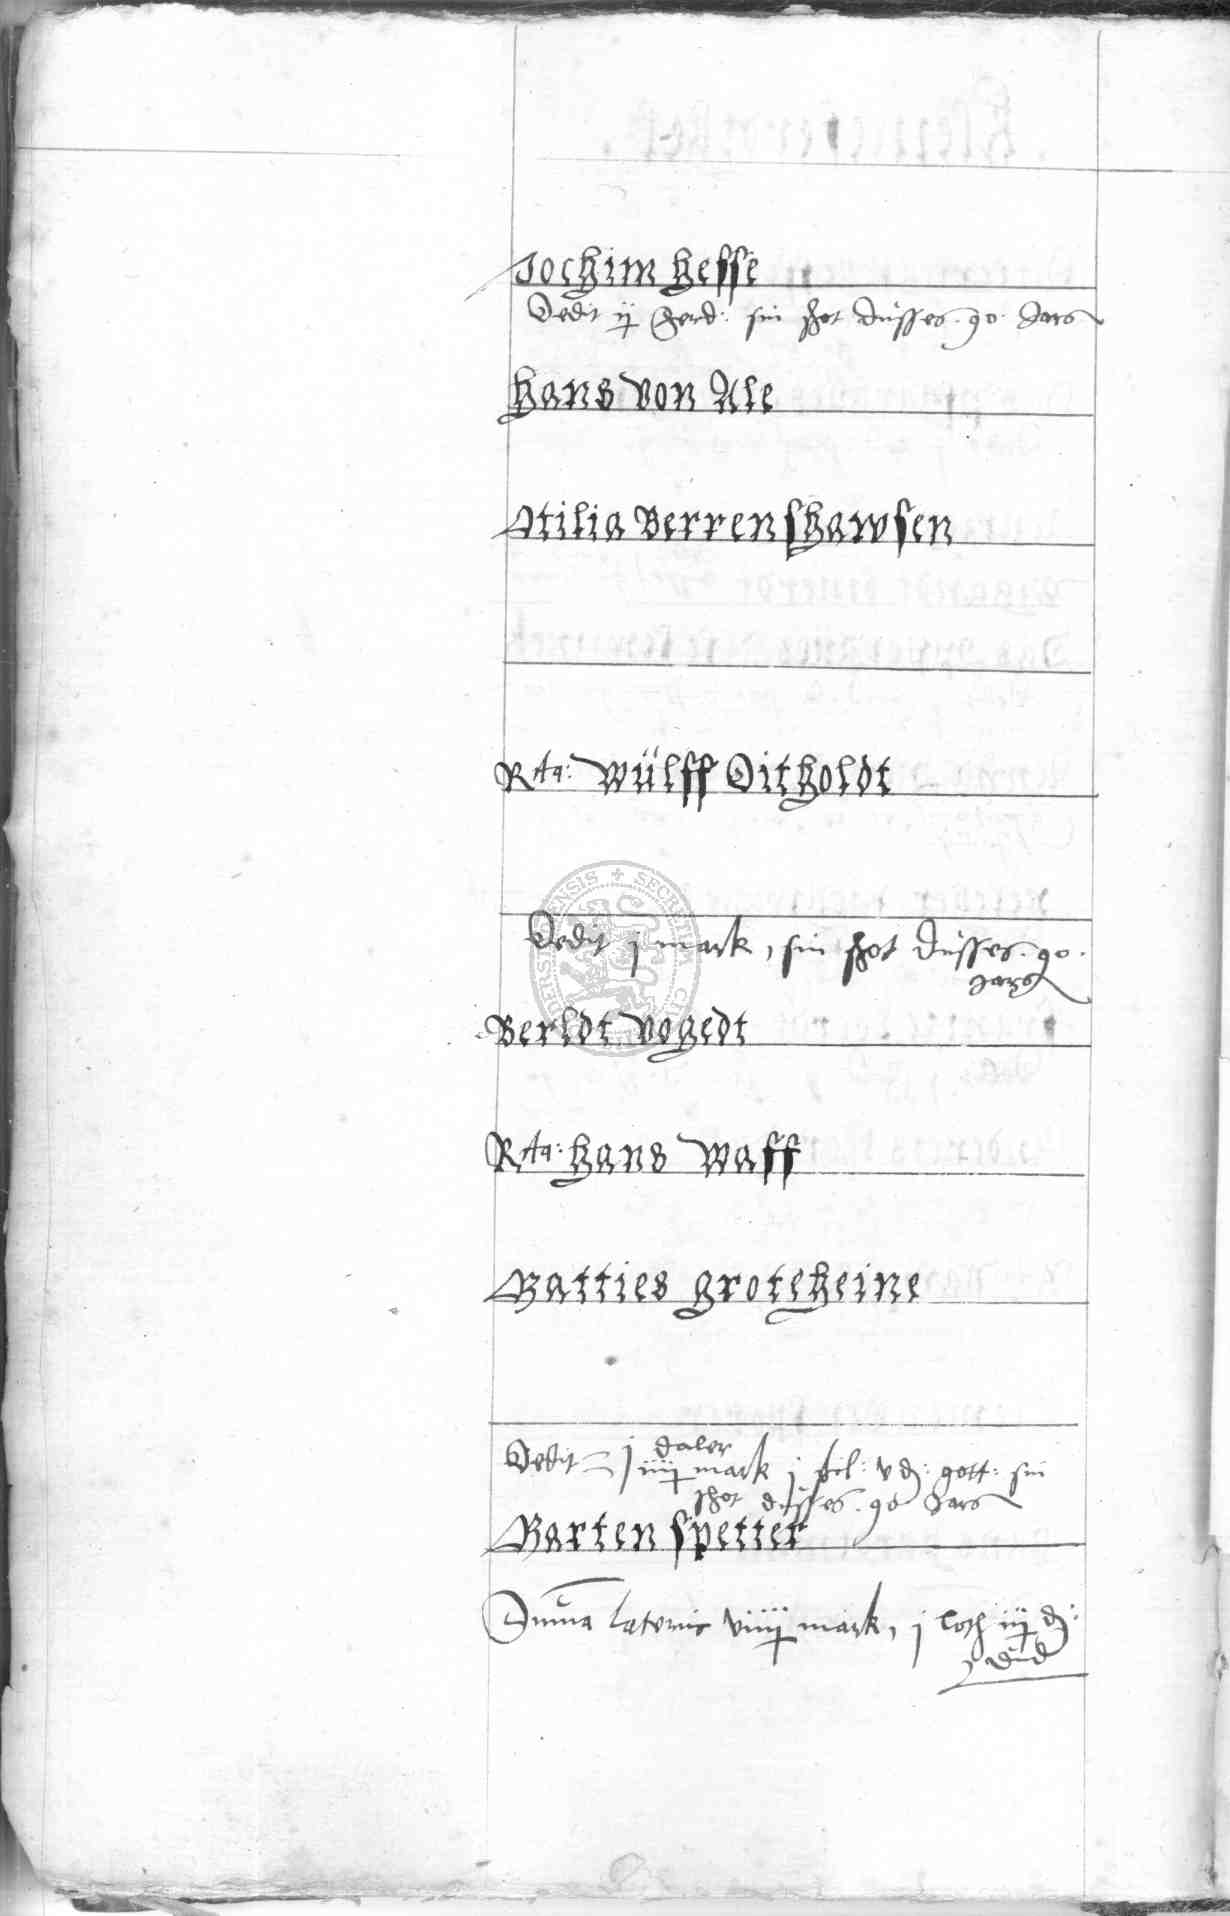 Jochim hesse
Dedit ij ferd: sin schot dusses 90 Jars
hans von Ale
Otilia Berrenshawsen
Rta: wülff Oitholdt
Dedit j mark, sin schot dusses 90.
Jars
Berldt vogedt
Rta: hans waff
Matties groteheine
daler
Dedit j iiij mark j sol: v d: gott: sin
schot dusses 90 Jars
Marten spetter
Summa lateris viiij mark, j loth iij d: